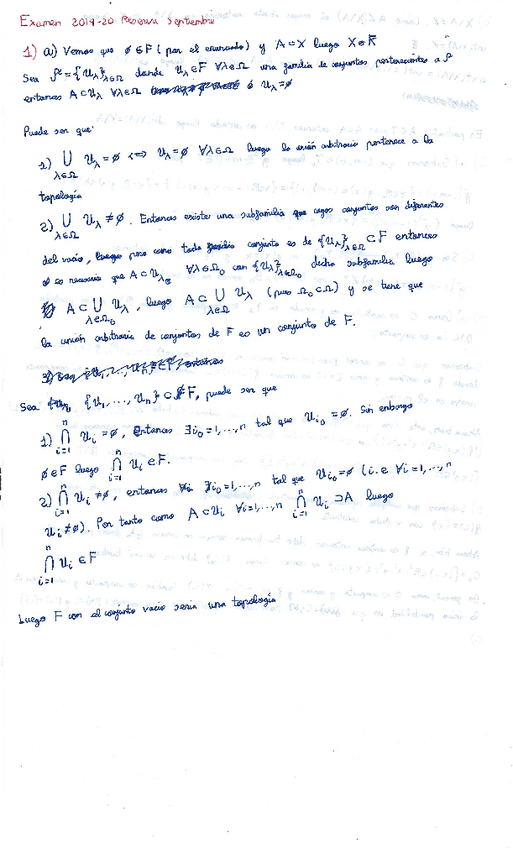 Examen 2019-20 Reserva Septiembre
1) a) Vemos que ∅∈F (por el enunciado) y A⊂X luego X∈F
Sea 𝒮={U_λ}_{λ∈Ω} donde U_λ∈F ∀λ∈Ω una familia de conjuntos pertenecientes a
entonces A⊂U_λ ∀λ∈Ω ó U_λ=∅
Puede ser que
1) ⋃_{λ∈Ω} U_λ=∅ ⟺ U_λ=∅ ∀λ∈Ω luego la unión arbitraria pertenece a la
topología
2) ⋃_{λ∈Ω} U_λ≠∅. Entonces existe una subfamilia cuyos conjuntos son diferentes
del vacío, pero como todo conjunto es de {U_λ}_{λ∈Ω}⊂F entonces
es necesario que A⊂U_λ ∀λ∈Ω₀ con {U_λ}_{λ∈Ω₀} dicha subfamilia luego
A⊂⋃_{λ∈Ω₀} U_λ, luego A⊂⋃_{λ∈Ω} U_λ (pues Ω₀⊂Ω) y se tiene que
la unión arbitraria de conjuntos de F es un conjunto de F.
Sea {U₁,...,Uₙ}⊂F, puede ser que
1) ⋂_{i=1}^{n} U_i=∅, Entonces ∃i₀=1,...,n tal que U_{i₀}=∅. Sin embargo
∅∈F luego ⋂_{i=1}^{n} U_i∈F.
2) ⋂_{i=1}^{n} U_i≠∅, entonces ∄i₀=1,...,n tal que U_{i₀}=∅ (i.e ∀i=1,...,n
U_i≠∅). Por tanto como A⊂U_i ∀i=1,...,n ⋂_{i=1}^{n} U_i⊃A luego
⋂_{i=1}^{n} U_i∈F
Luego F con el conjunto vacío sería una topología